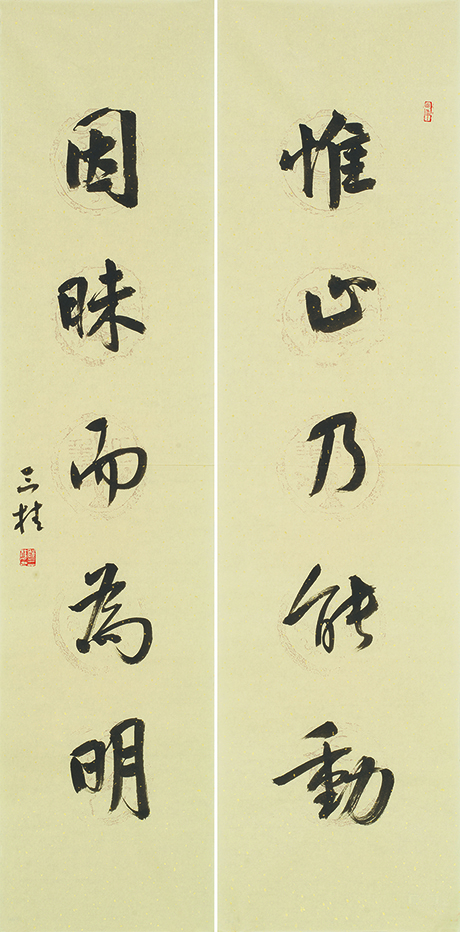 惟止乃能動
因昧而為明
三桂